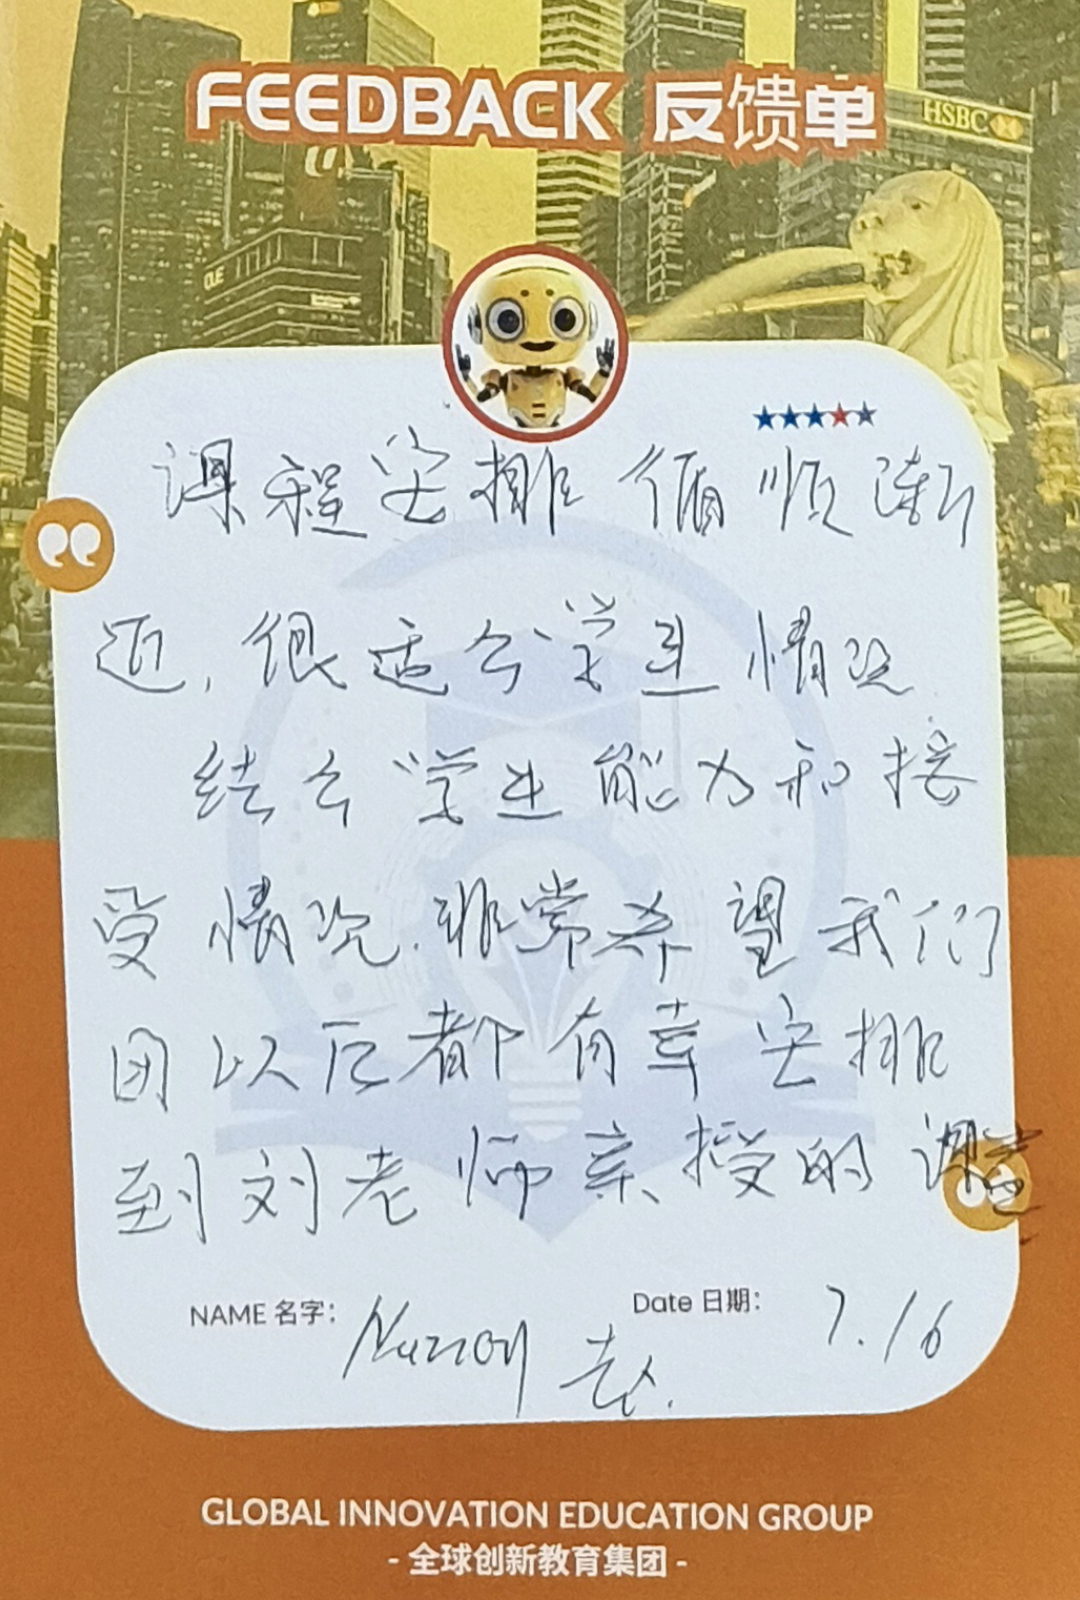 FEEDBACK 反馈单
HSBC
OUE
课程安排循顺渐
近，很适合学生情况
结合学生能力和接
受情况．非常希望我们
团以后都有幸安排
到刘老师亲授的课堂
NAME 名字： 赵
Date 日期： 7.16
GLOBAL INNOVATION EDUCATION GROUP
- 全球创新教育集团 -